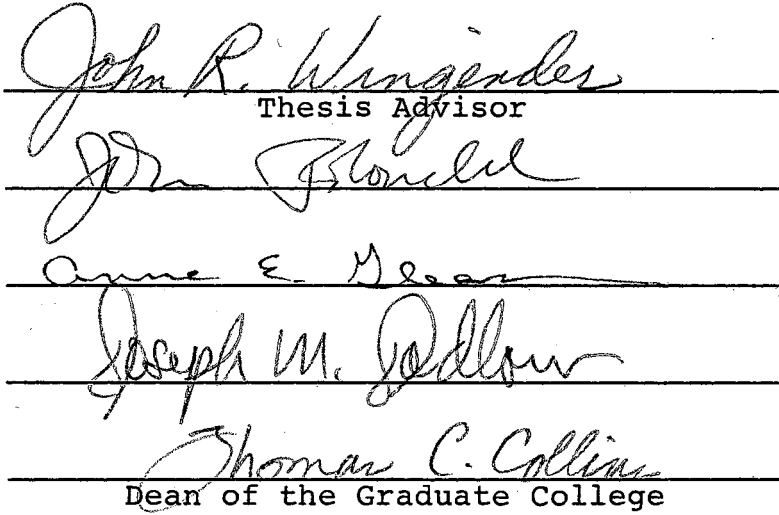 John R. Wingender
Thesis Advisor
John Blondel
Anne E.
Joseph M. Jadlow
Thomas C. Collins
Dean of the Graduate College